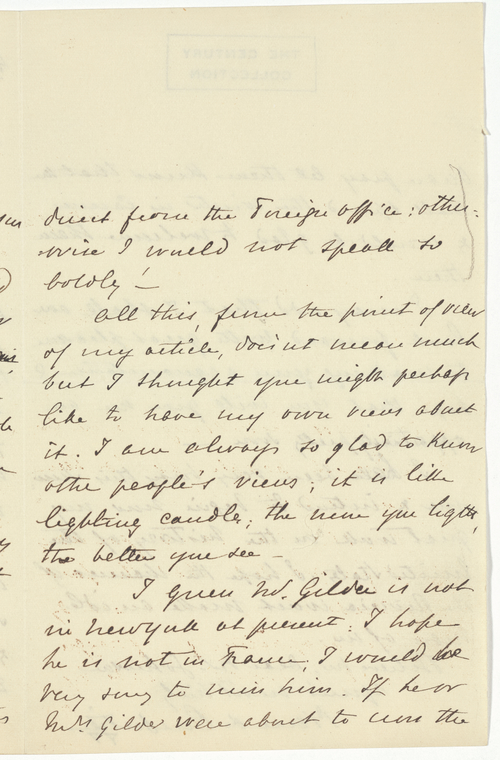 direct from the Foreign office; other-
wise I would not speak so
boldly! —
All this, from the point of view
of my article, does'nt mean much
but I thought you might perhaps
like to have my own views about
it. I am always so glad to know
other people's views; it is like
lighting candles; the more you light,
the better you see —
I guess Mr. Gilder is not
in New York at present. I hope
he is not in France; I would be
very sorry to miss him. If he or
Mrs Gilder were about to cross the